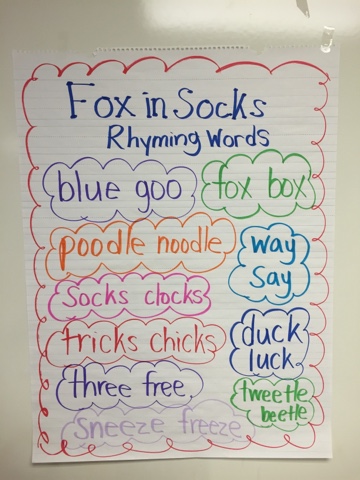 Fox in Socks
Rhyming Words
blue goo
fox box
poodle noodle
way
say
socks clocks
tricks chicks
duck
luck
three free
tweetle
beetle
sneeze freeze